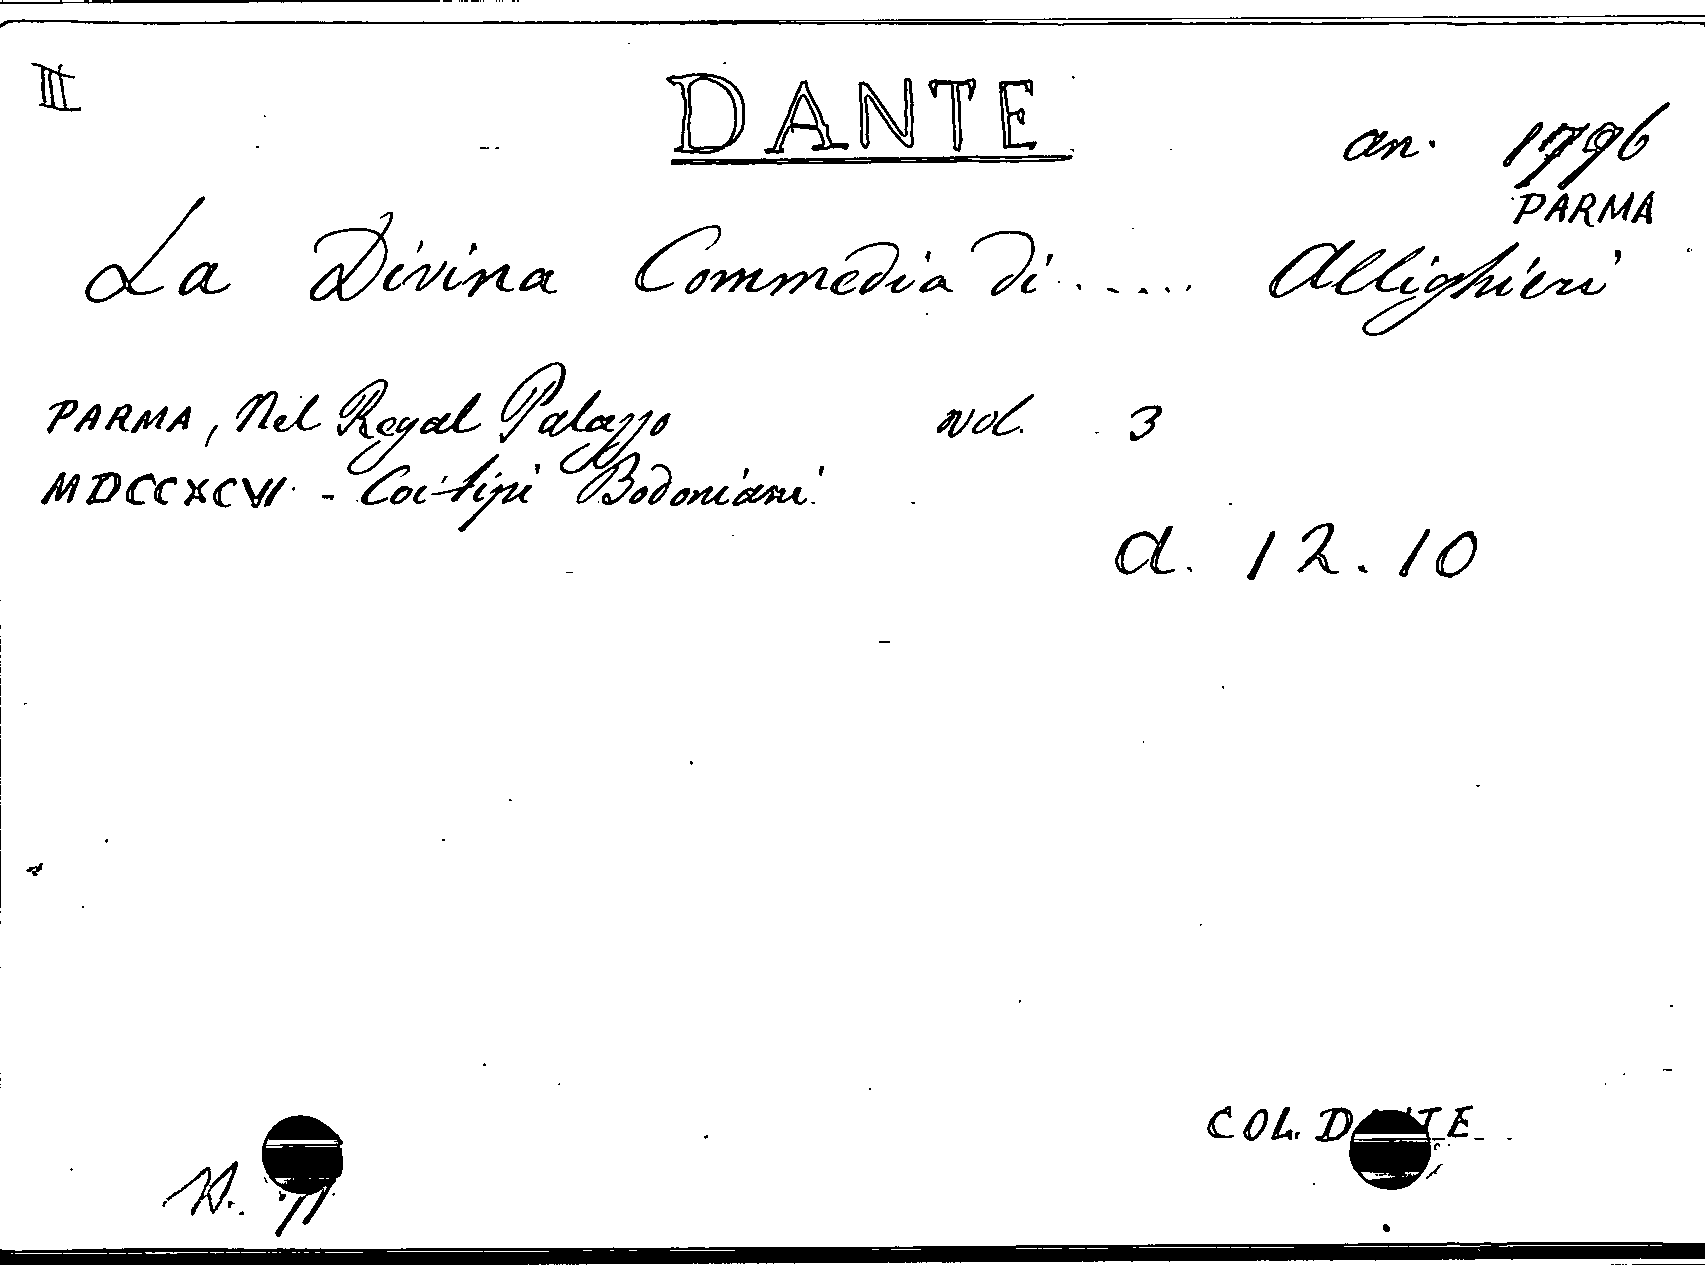 II
DANTE
an. 1796
PARMA
La Divina Commedia di ..... Allighieri
PARMA, Nel Regal Palazzo vol. 3
MDCCXCVI - Coi tipi Bodoniani
a. 12.10
COL. DANTE
N.